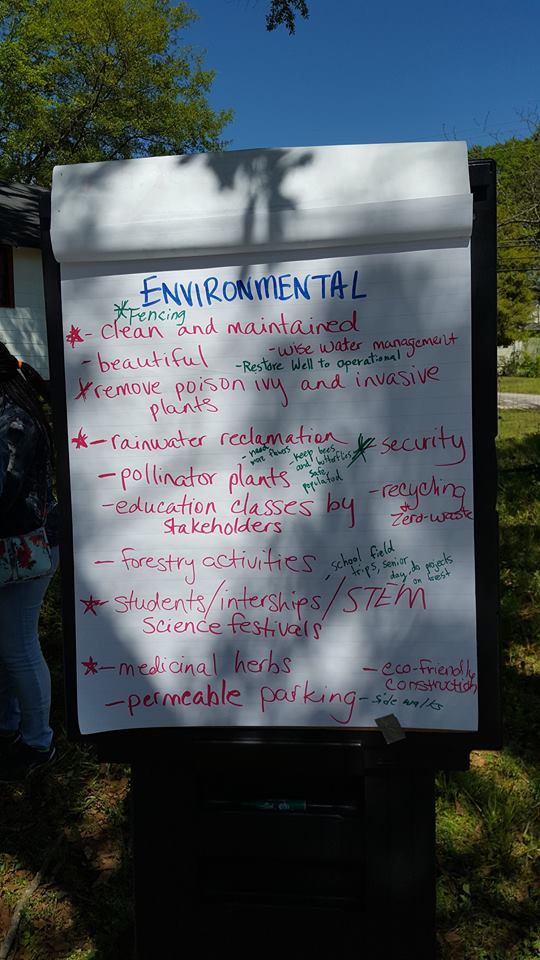 ENVIRONMENTAL
*Fencing
*- clean and maintained
- beautiful
- wise water management
- Restore Well to operational
*remove poison ivy and invasive
plants
*- rainwater reclamation
* security
- need
more flowers
- keep bees
and butterflies
safe,
populated
- pollinator plants
- recycling
zero-waste
- education classes by
stakeholders
- forestry activities
- school field
trips, senior
day, do projects
on forest
*- students/interships/STEM
Science festivals
*- medicinal herbs
- eco-friendly
construction
- permeable parking
- side walks